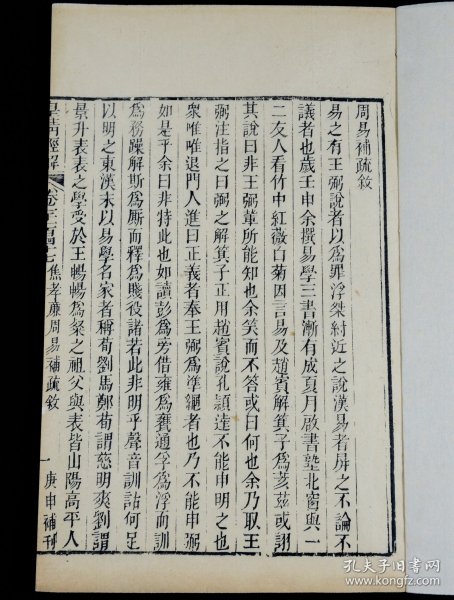 周易補疏敘
易之有王弼說者以爲罪浮桀紂近之說漢易者屏之不論不
議者也歲壬申余撰易學三書漸有成夏月啟書塾北窗與一
二友人看竹中紅薇白菊因言易及趙賓解箕子爲荄茲或詡
其說曰非王弼輩所能知也余笑而不答或曰何也余乃取王
弼注指之曰弼之解箕子正用趙賓說孔穎達不能申明之也
衆唯唯退門人進曰正義者奉王弼爲準繩者也乃不能申弼
如是乎余曰非特此也如讀彭爲旁借雍爲甕通孚爲浮而訓
爲務躁解斯爲厮而釋爲賤役諸若此非明乎聲音訓詁何足
以明之東漢末以易學名家者稱荀劉馬鄭荀謂慈明爽劉謂
景升表表之學受於王暢暢爲粲之祖父與表皆山陽高平人
皇清經解
卷三百四十七
焦孝廉周易補疏敘
一
庚申補刊
孔夫子旧书网
www.kongfz.com